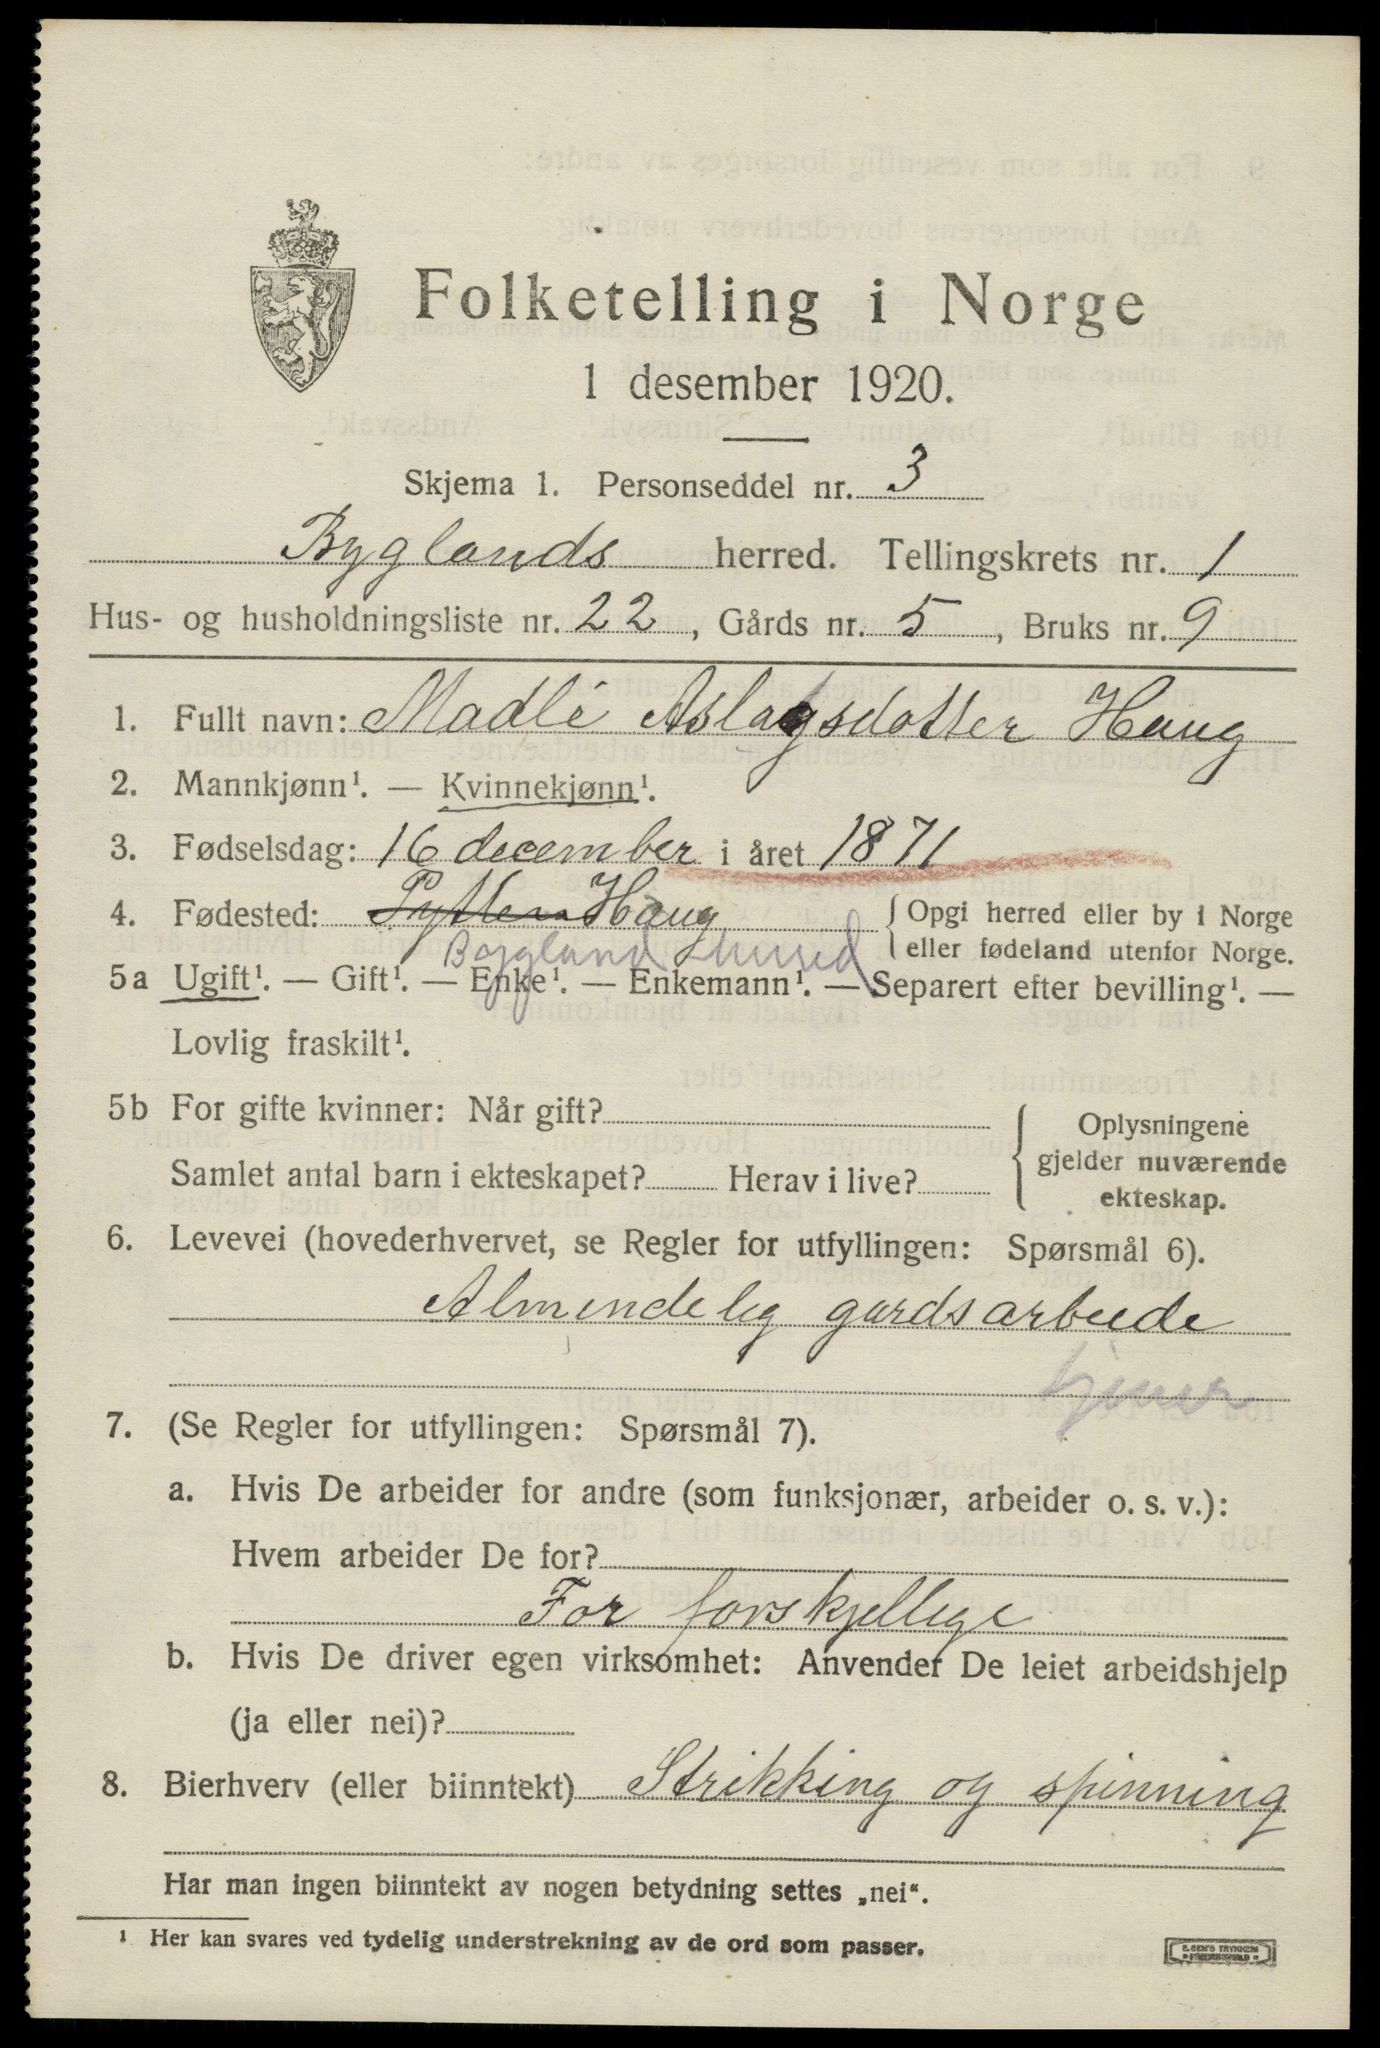 Folketelling i Norge
1 desember 1920.
Skjema 1. Personseddel nr. 3
Byglands herred. Tellingskrets nr. 1
Hus- og husholdningsliste nr. 22, Gårds nr. 5, Bruks nr. 9
1. Fullt navn: Madli Aslagsdotter Haug
2. Mannkjønn¹. — Kvinnekjønn¹.
3. Fødselsdag: 16 december i året 1871
4. Fødested: Haug {Opgi herred eller by i Norge
eller fødeland utenfor Norge.
Bygland
5a Ugift¹. — Gift¹. — Enke¹. — Enkemann¹. — Separert efter bevilling¹. —
Lovlig fraskilt¹.
5b For gifte kvinner: Når gift?
Samlet antal barn i ekteskapet? Herav i live?
{Oplysningene
gjelder nuværende
ekteskap.
6. Levevei (hovederhvervet, se Regler for utfyllingen: Spørsmål 6).
Almindelig gardsarbeide
7. (Se Regler for utfyllingen: Spørsmål 7).
a. Hvis De arbeider for andre (som funksjonær, arbeider o. s. v.):
Hvem arbeider De for?
For forskjellige
b. Hvis De driver egen virksomhet: Anvender De leiet arbeidshjelp
(ja eller nei)?
8. Bierhverv (eller biinntekt) Strikking og spinning
Har man ingen biinntekt av nogen betydning settes „nei“.
¹ Her kan svares ved tydelig understrekning av de ord som passer.